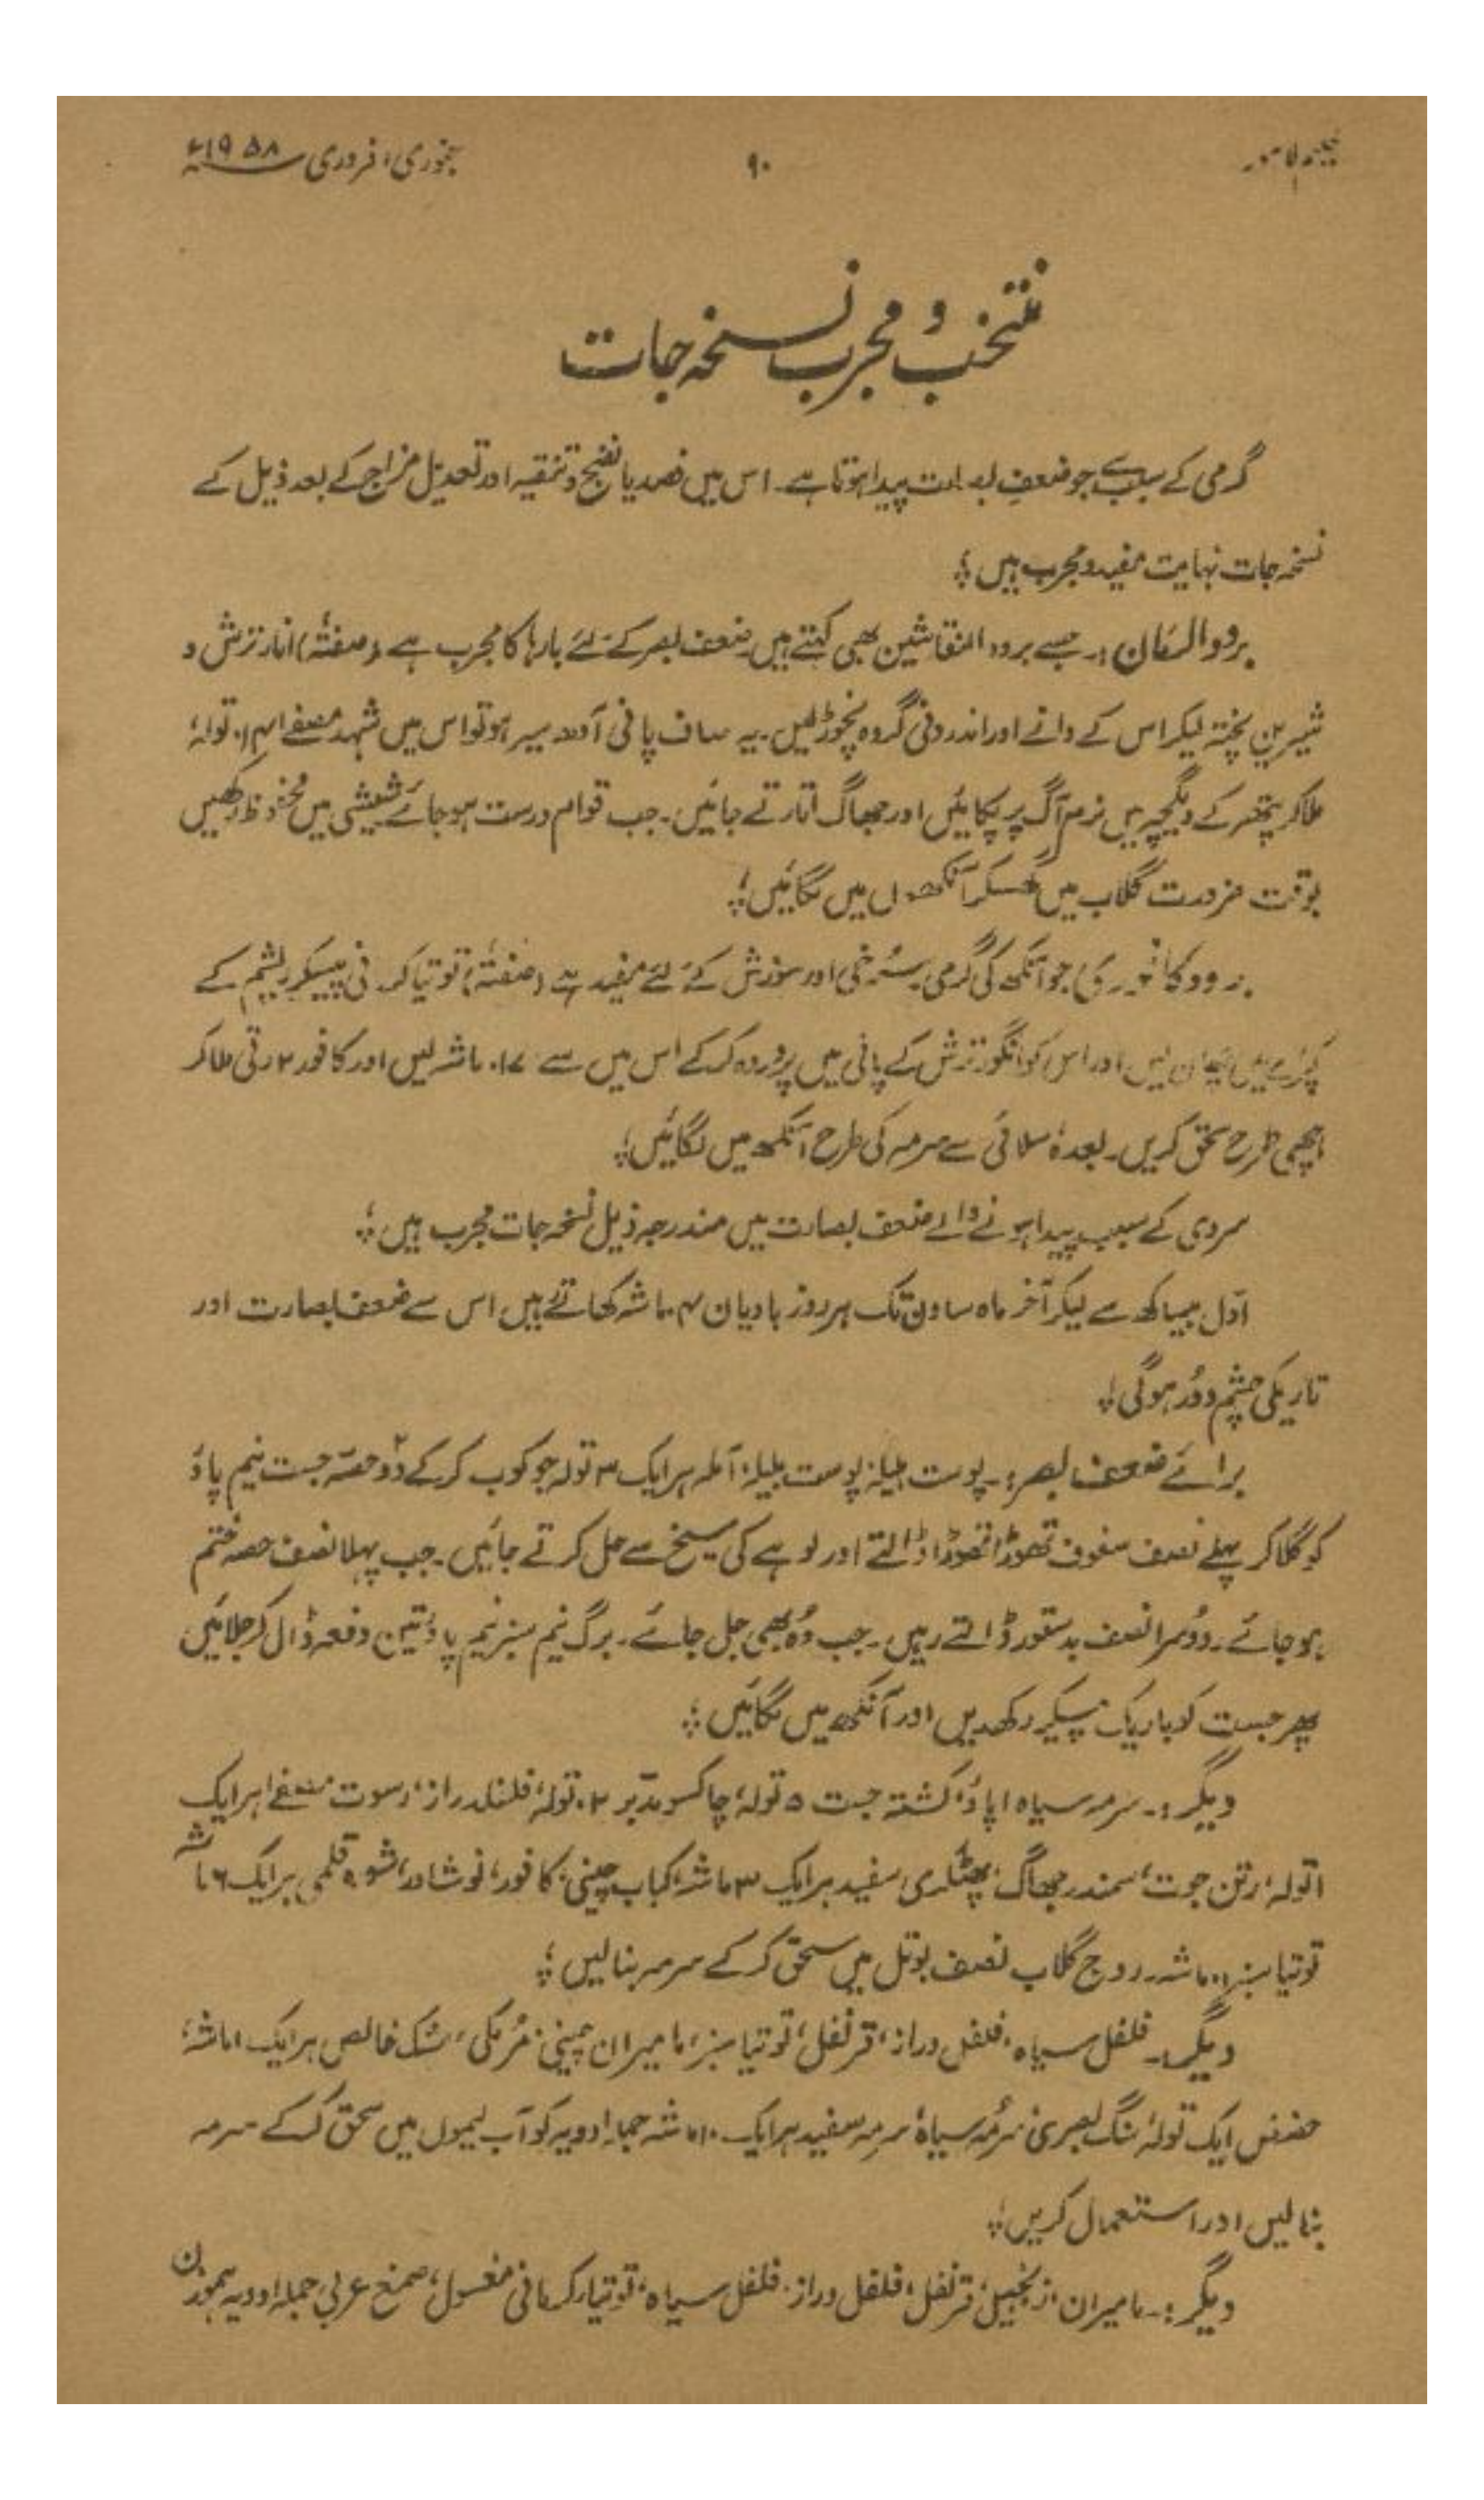 حکیم لاہور
۹۰
جنوری، فروری ۱۹۵۸ء
منتخب و مجرب نسخہ جات
گرمی کے سبب جو ضعف بصارت پیدا ہوتا ہے۔ اس میں فصد یا نضج و تنقیہ اور تعدیل مزاج کے بعد ذیل کے
نسخہ جات نہایت مفید و مجرب ہیں ؛
برودالرمان :۔ جسے برود النقاشین بھی کہتے ہیں ضعف بصر کے لئے بارہا کا مجرب ہے (صفتہٗ) انار ترش و
شیریں پختہ لیکر اس کے دانے اور اندرونی گروہ نچوڑ لیں۔ یہ صاف پانی آدھ سیر ہو تو اس میں شہد مصفے تولہ،
ملا کر پتھر کے دیگچہ میں نرم آگ پر پکائیں اور جھاگ اتارتے جائیں۔ جب قوام درست ہو جائے شیشی میں محفوظ رکھیں
بوقت ضرورت گلاب میں گھسکر آنکھوں میں لگائیں ؛
برود کافوری جو آنکھ کی گرمی۔ سُرخی اور سوزش کے لئے مفید ہے (صفتہٗ) توتیا کرمانی پیسکر ریشم کے
کپڑے میں چھان لیں اور اس کو انگور ترش کے پانی میں پروردہ کر کے اس میں سے ۱۷ ماشہ لیں اور کافور ۲ رتی ملا کر
اچھی طرح سحق کریں۔ بعدہٗ سلائی سے سرمہ کی طرح آنکھ میں لگائیں ؛
سردی کے سبب پیدا ہونے والے ضعف بصارت میں مندرجہ ذیل نسخہ جات مجرب ہیں ؛
اوّل بیساکھ سے لیکر آخر ماہ ساون تک ہر روز بادیان ۴ ماشہ کھاتے ہیں اس سے ضعف بصارت اور
تاریکی چشم دُور ہوگی ؛
برائے ضعف بصر :۔ پوست ہلیلہ، پوست بلیلہ، آملہ ہر ایک ۳ تولہ جو کوب کر کے دو حصّہ جست نیم پاؤ
کو گلا کر پہلے نصف سفوف تھوڑا تھوڑا ڈالتے اور لوہے کی سیخ سے حل کرتے جائیں۔ جب پہلا نصف حصہ ختم
ہو جائے۔ دُوسرا نصف بدستور ڈالتے رہیں۔ جب وُہ بھی جل جائے۔ برگ نیم سبز نیم پاؤ تین دفعہ ڈال کر جلائیں
پھر جست کو باریک پیسکر رکھدیں اور آنکھ میں لگائیں ؛
دیگر :۔ سرمہ سیاہ ۱ پاؤ، کشتہ جست ۵ تولہ، چاکسو مدبّر ۲ تولہ، فلفل دراز، رسوت مصفے ہر ایک
۱ تولہ، رتن جوت، سمندر جھاگ، پھٹکڑی سفید ہر ایک ۳ ماشہ، کباب چینی، کافور، نوشادر، شورہ قلمی ہر ایک ۶ ماشہ
توتیا سبز ماشہ۔ روح گلاب نصف بوتل میں سحق کر کے سرمہ بنا لیں ؛
دیگر :۔ فلفل سیاہ، فلفل دراز، قرنفل، توتیا سبز، مامیران چینی، مُرمکی، مشک خالص ہر ایک ۱ ماشہ،
حضض ایک تولہ، سنگ بصری، سُرمہ سیاہ، سرمہ سفید ہر ایک ۱۰ ماشہ جملہ ادویہ کو آب لیموں میں سحق کر کے سرمہ
بنا لیں اور استعمال کریں ؛
دیگر :۔ مامیران، زنجبیل، قرنفل، فلفل دراز، فلفل سیاہ، توتیا کرمانی مغسول، صمغ عربی جملہ ادویہ ہموزن